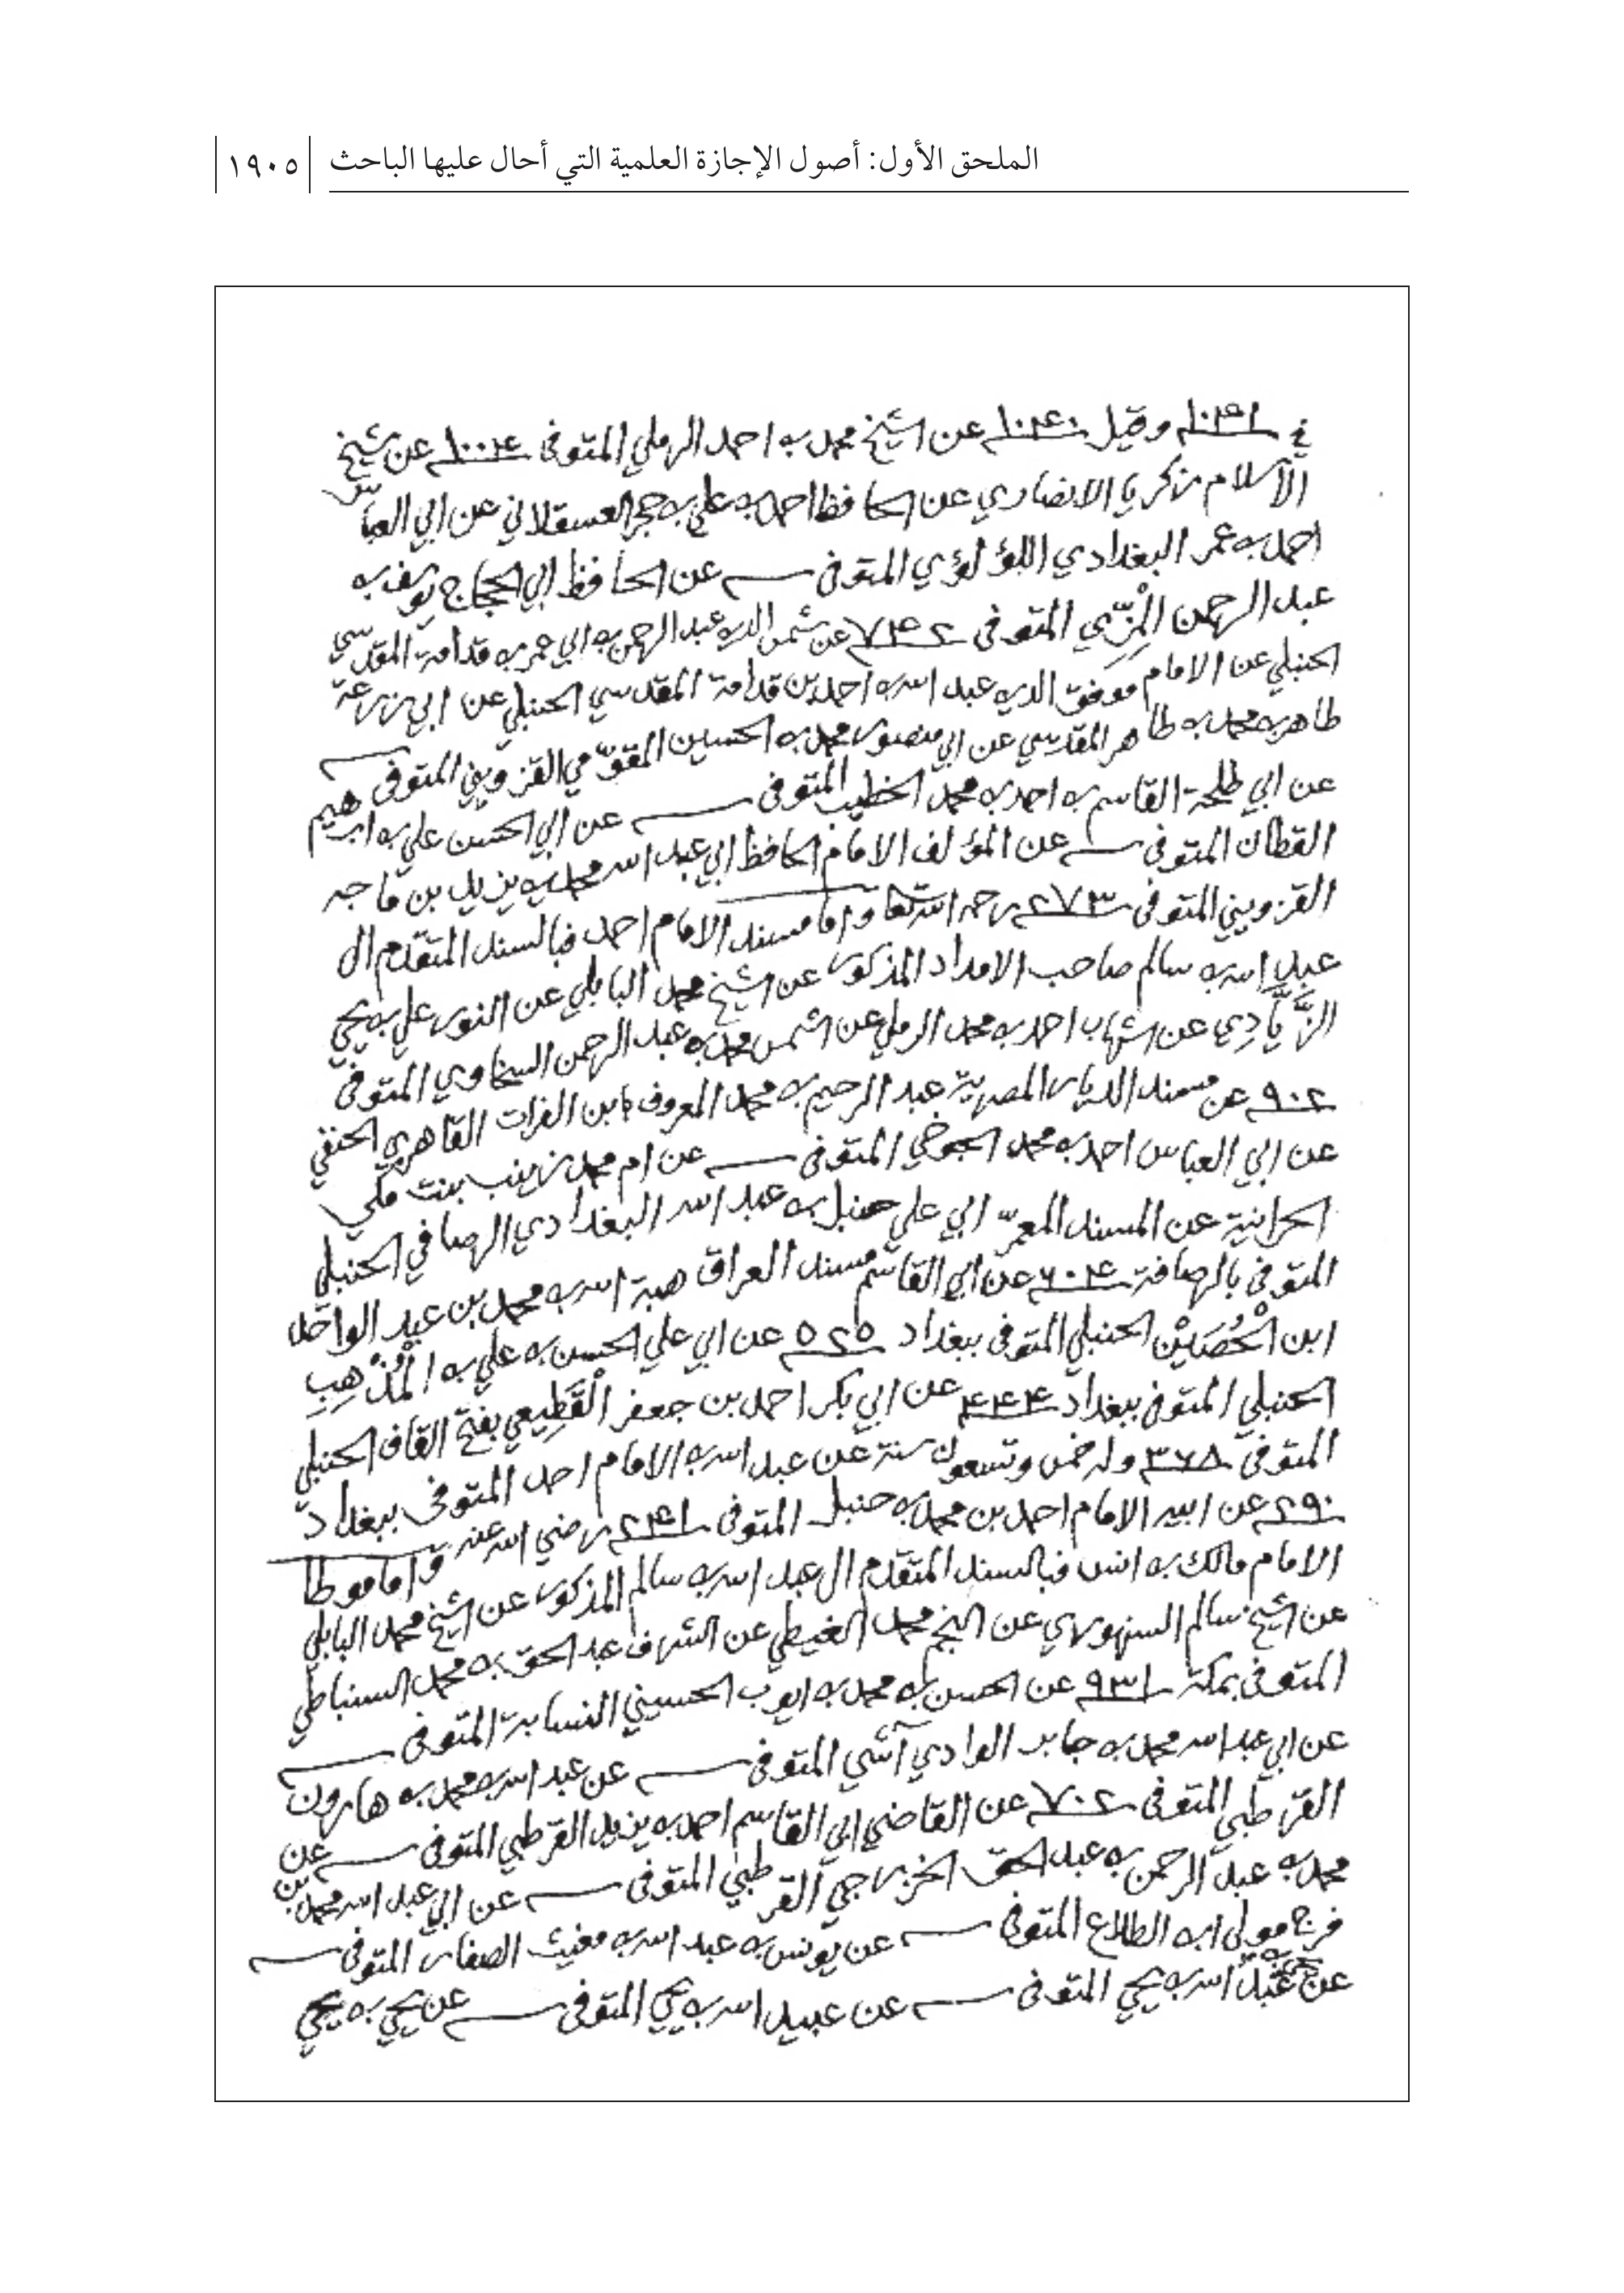 الملحق الأول: أصول الإجازة العلمية التي أحال عليها الباحث ١٩٠٥
في ١٠٤١ وقيل ١٠٤٠ عن الشيخ محمد به احمد الرملي المتوفى ١٠٠٤ عن شيخ
الاسلام زكريا الانصاري عن الحافظ احمد به علي به حجر العسقلاني عن ابي العباس
احمد به عمر البغدادي اللؤلؤي المتوفى عن الحافظ ابي الحجاج يوسف به
عبد الرحمن المِزِّي المتوفى ٧٤٢ عن شمس الديه عبد الرحمن به ابي عمر به قدامة المقدسي
الحنبلي عن الامام موفق الديه عبد الله به احمد بن قدامة المقدسي الحنبلي عن ابي زرعة
طاهر به محمد به طاهر المقدسي عن ابي منصور محمد به الحسين المقوّمي القزويني المتوفى
عن ابي طلحة القاسم به احمد به محمد الخطيب المتوفى عن ابي الحسن علي به ابرهيم
القطان المتوفى عن المؤلف الامام الحافظ ابي عبد الله محمد به يزيد بن ماجه
القزويني المتوفى ٢٧٣ رحمه الله تعا واما مسند الامام احمد فبالسند المتقدم الى
عبد الله به سالم صاحب الامداد المذكور عن الشيخ محمد البابلي عن النور علي به يحيى
الزَّيَّادِي عن الشهاب احمد به محمد الرملي عن الشمس محمد به عبد الرحمن السخاوي المتوفى
٩٠٢ عن مسند الديار المصرية عبد الرحيم به محمد المعروف بابن الفرات القاهري الحنفي
عن ابي العباس احمد به محمد الجوخي المتوفى عن ام محمد زينب بنت مكي
الحرانية عن المسند المعمر ابي علي حنبل به عبد الله البغدادي الرصافي الحنبلي
المتوفى بالرصافة ٦٠٤ عن ابي القاسم مسند العراق هبة الله به محمد بن عبد الواحد
ابن الْحُصَيْن الحنبلي المتوفى ببغداد ٥٢٥ عن ابي علي الحسن به علي به المُذْهِبِ
الحنبلي المتوفى ببغداد ٤٤٤ عن ابي بكر احمد بن جعفر الْقَطِيعي بفتح القاف الحنبلي
المتوفى ٣٦٨ وله خمس وتسعون سنة عن عبد الله به الامام احمد المتوفى ببغداد
٢٩٠ عن ابيه الامام احمد بن محمد به حنبل المتوفى ٢٤١ رضي الله عنه واما موطا
الامام مالك به انس فبالسند المتقدم الى عبد الله به سالم المذكور عن الشيخ محمد البابلي
عن الشيخ سالم السنهوري عن النجم محمد الغيطي عن الشرف عبد الحق به محمد السنباطي
المتوفى بمكة ٩٣١ عن الحسن به محمد به ايوب الحسيني النسابة المتوفى
عن ابي عبد الله محمد به جابر الوادي آشي المتوفى عن عبد الله به محمد به هارون
القرطبي المتوفى ٧٠٢ عن القاضي ابي القاسم احمد به يزيد القرطبي المتوفى عن
محمد به عبد الرحمن به عبد الحق الخزرجي القرطبي المتوفى عن ابي عبد الله محمد بن
فرج مولى ابه الطلاع المتوفى عن يونس به عبد الله به مغيث الصفار المتوفى
عن عبد الله به يحيى المتوفى عن عبيد الله به يحيى المتوفى عن يحيى به يحيى